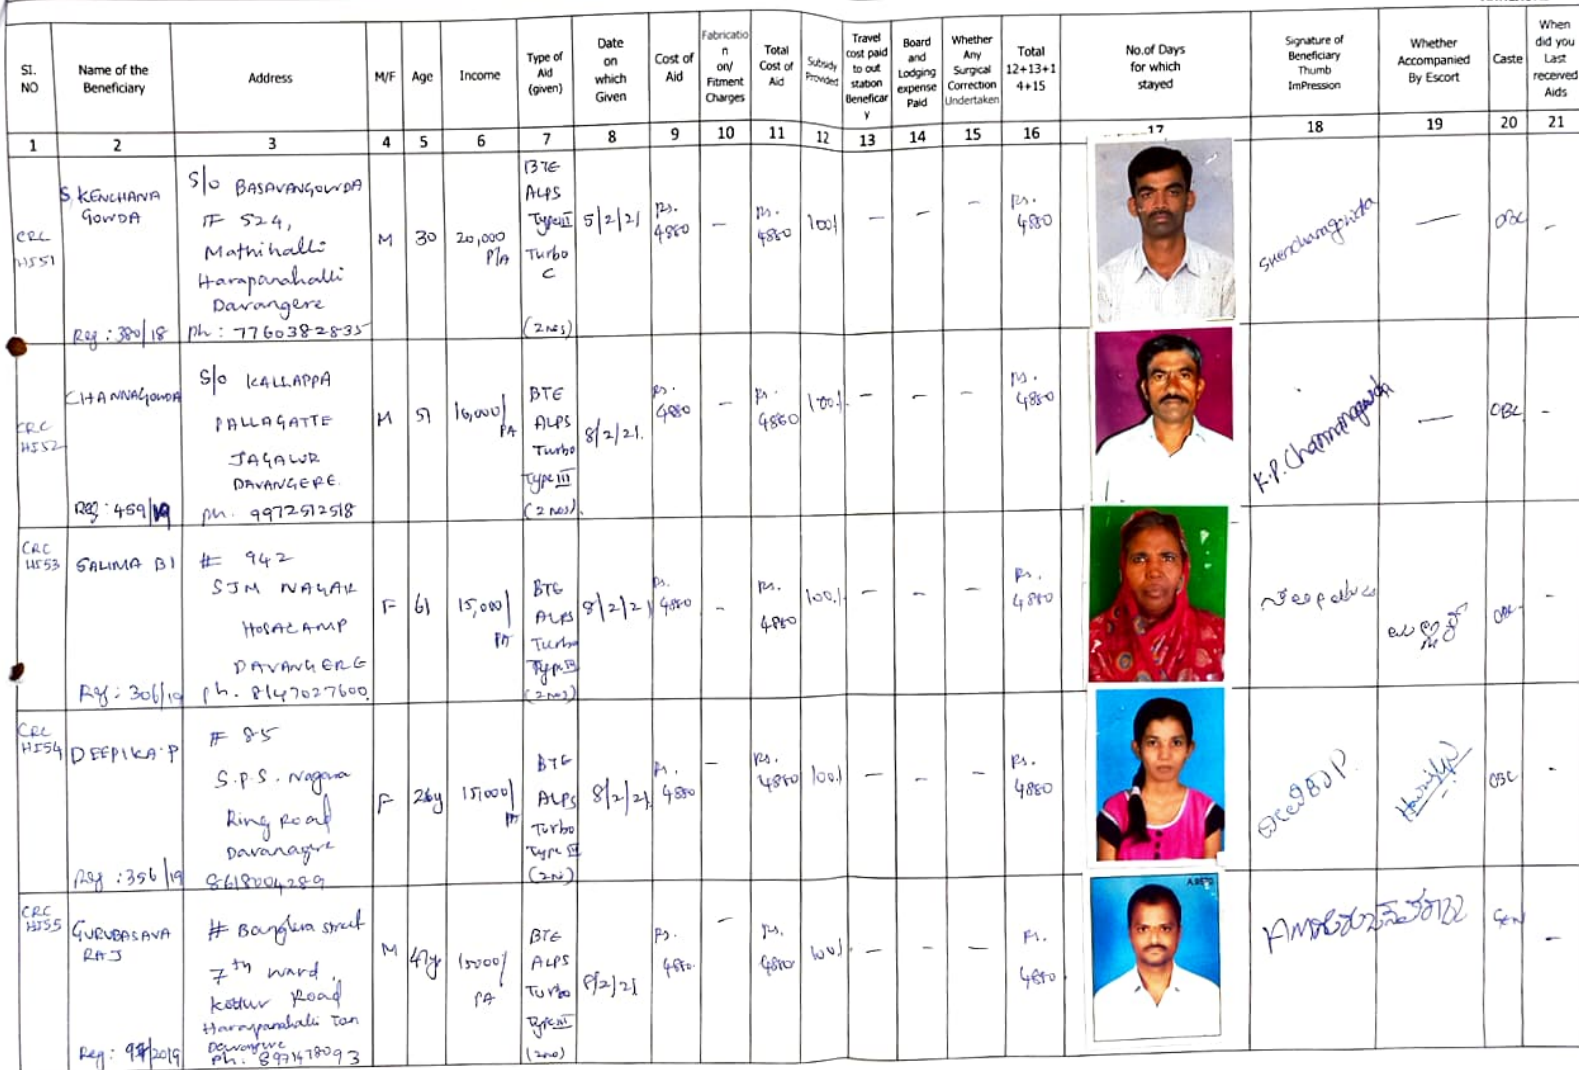 SI. NO
Name of the Beneficiary
Address
M/F
Age
Income
Type of Aid (given)
Date on which Given
Cost of Aid
Fabricatio n on/ Fitment Charges
Total Cost of Aid
Subsidy Provided
Travel cost paid to out station Beneficar y
Board and Lodging expense Paid
Whether Any Surgical Correction Undertaken
Total 12+13+1 4+15
No.of Days for which stayed
Signature of Beneficiary Thumb ImPression
Whether Accompanied By Escort
Caste
When did you Last received Aids
1 2 3 4 5 6 7 8 9 10 11 12 13 14 15 16 17 18 19 20 21
CRC HI51
S. KENCHANA GOWDA
Reg : 380/18
S/o BASAVANGOWDA
# 524,
Mathihalli
Harapanahalli
Davangere
ph : 7760382835
M
30
20,000 P/A
BTE
ALPS
Type III
Turbo
C
(2 nos)
5/2/21
Rs. 4880
–
Rs. 4880
100%
– – –
Rs. 4880
Skenchanagowda
—
OBC
–
CRC HI52
CHANNAGOWDA
Reg : 459/19
S/o KALLAPPA
PALLAGATTE
JAGALUR
DAVANGERE.
ph. 9972512518
M
51
16,000/ PA
BTE
ALPS
Turbo
Type III
(2 nos).
8/2/21.
Rs. 4880
–
Rs. 4880
100%
– – –
Rs. 4880
K.P. Channanagowda
—
OBC
–
CRC HI53
SALIMA BI
Reg : 306/19
# 942
SJM NAGAR
HOSACAMP
DAVANGERE
ph. 8147027600.
F
61
15,000/ PA
BTE
ALPS
Turbo
Type III
(2 nos)
8/2/21
Rs. 4880
–
Rs. 4880
100%
– – –
Rs. 4880
OBC
–
CRC HI54
DEEPIKA P
Reg : 356/19
# 85
S.P.S. Nagara
Ring Road
Davanagere
8618004289
F
26y
15,000/ PA
BTE
ALPS
Turbo
Type III
(2 No)
8/2/21.
Rs. 4880
–
Rs. 4880
100%
– – –
Rs. 4880
ದೀಪಿಕಾ P.
OBC
–
CRC HI55
GURUBASAVA RAJ
Reg : 97/2019
# Bangera street
7th ward,
Kottur Road
Harapanahalli Tan
Davangere
Ph: 8971478093
M
47y
15000/ PA
BTE
ALPS
Turbo
Type III
(2no)
8/2/21
Rs. 4880.
–
Rs. 4880
100%
– – –
Rs. 4880
GEN
–